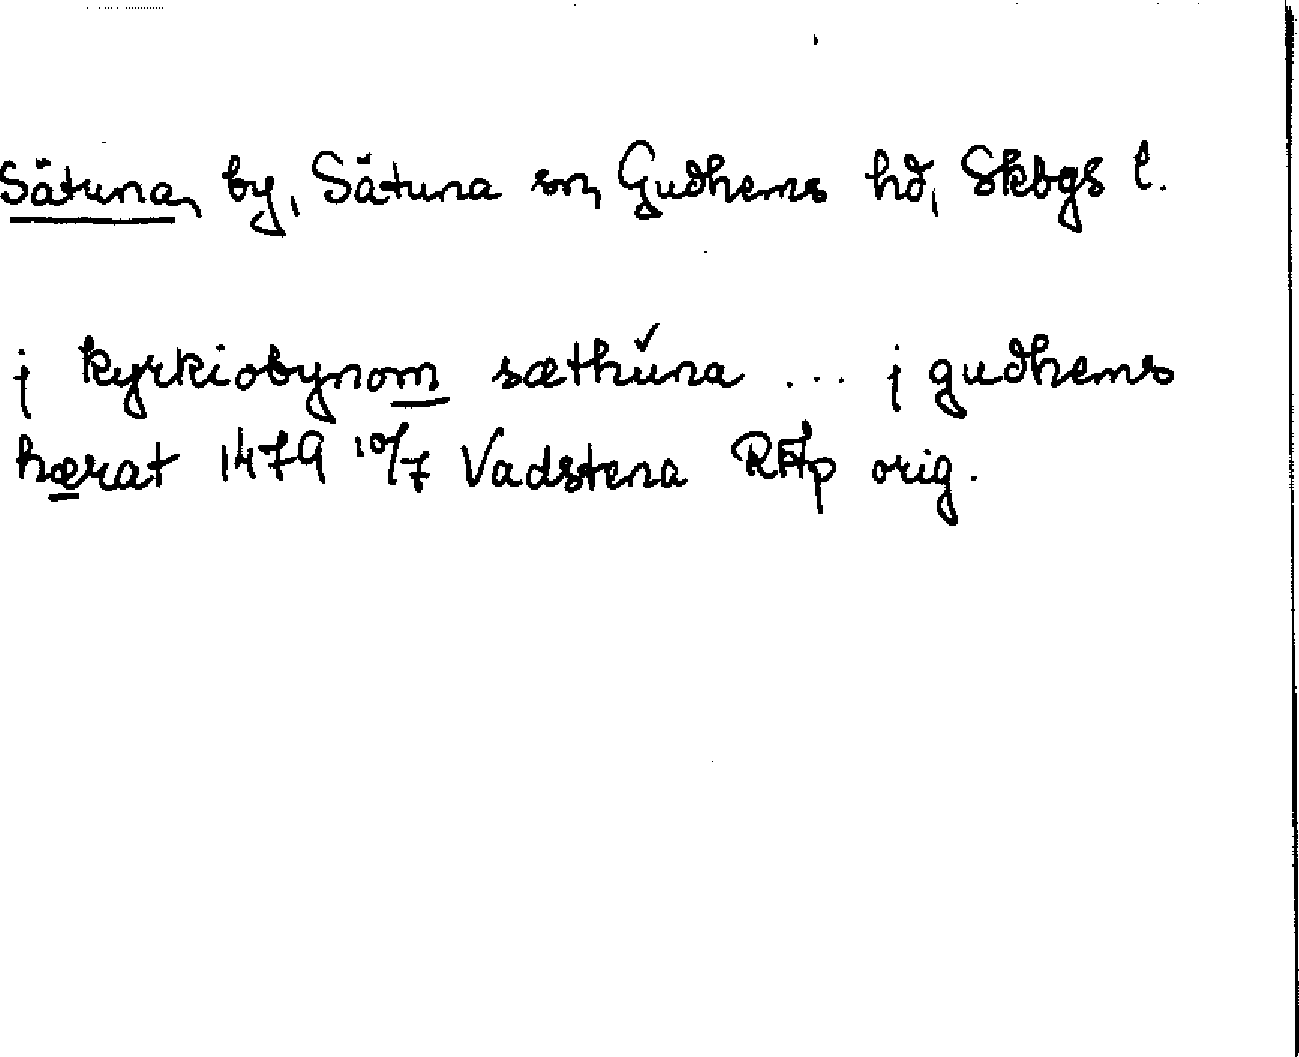 Sätuna, by, Sätuna sn, Gudhems hd, Skbgs l.
j kyrkiobynom sæthúna ... j gudhems
hærat 1479 10/7 Vadstena RAp orig.